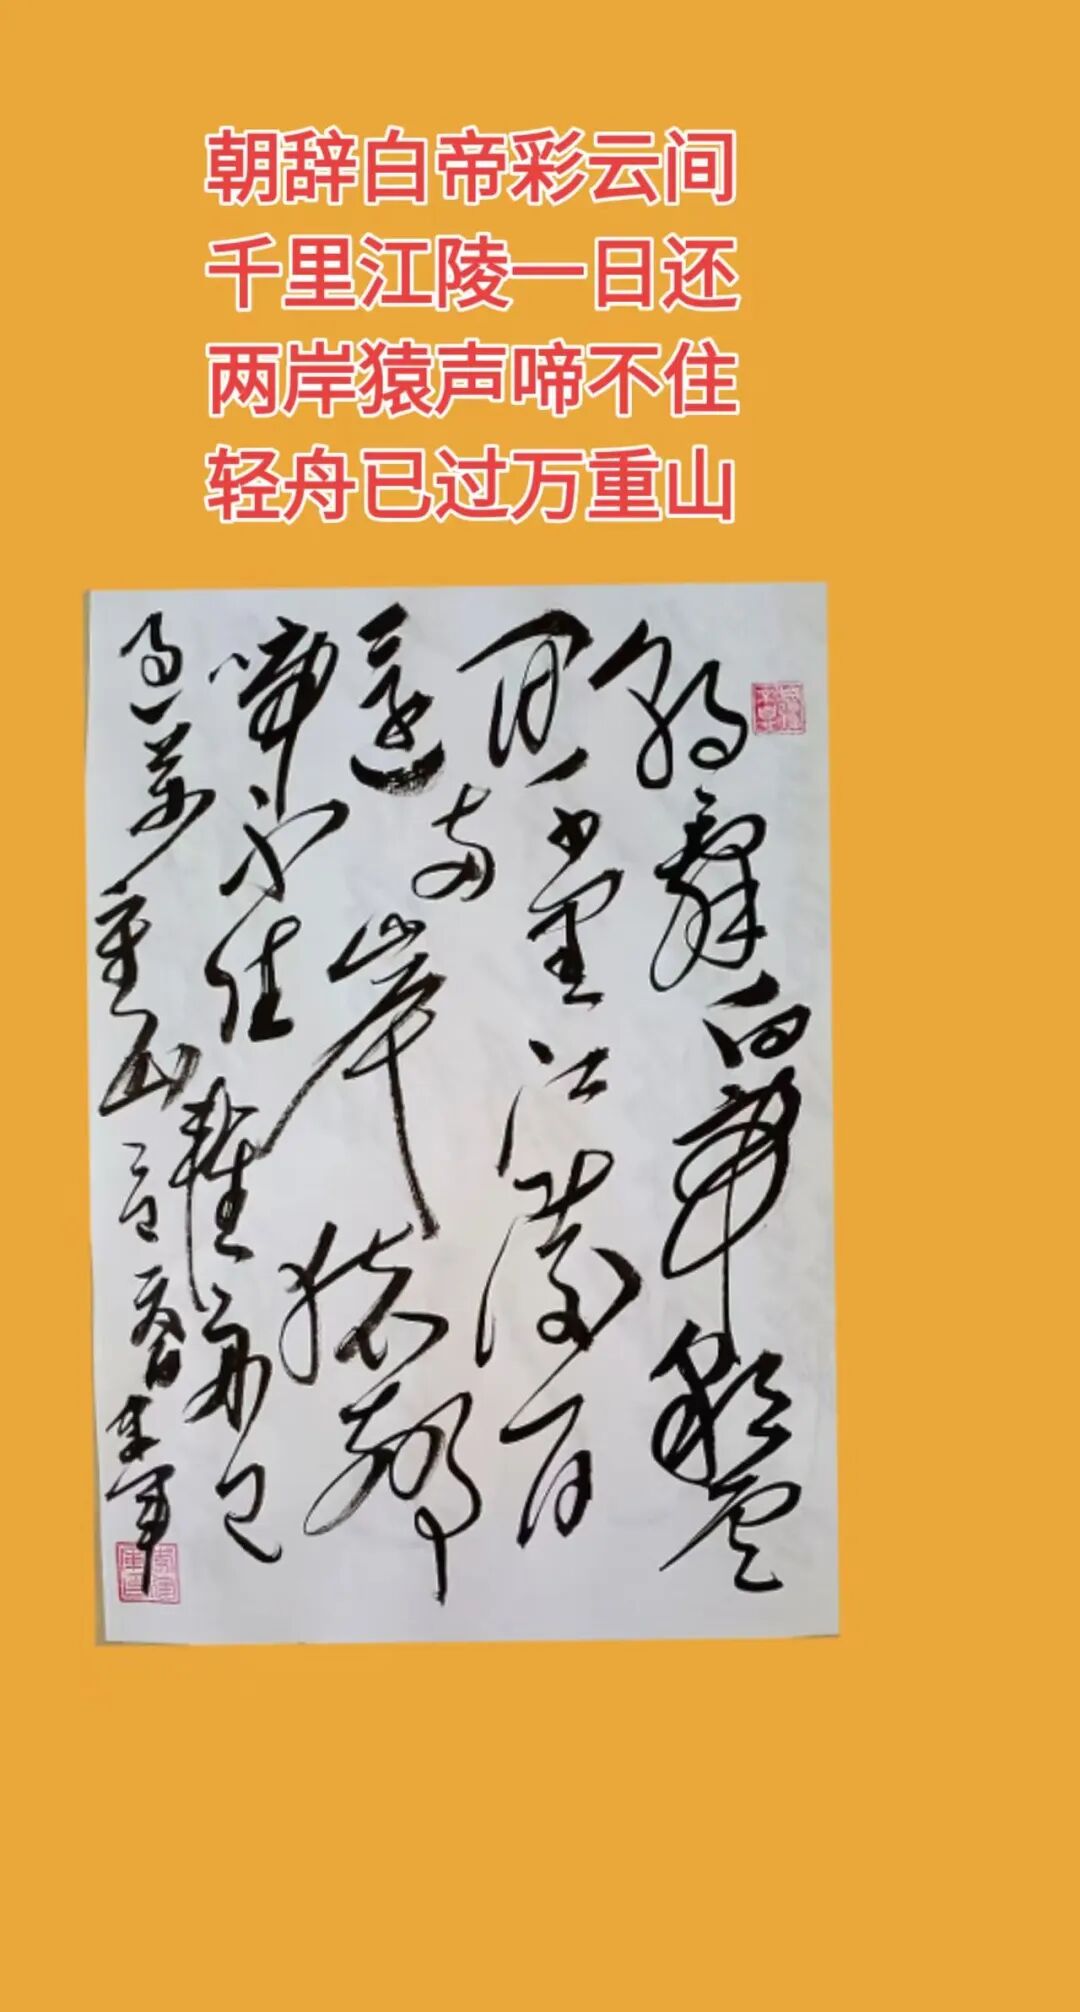 朝辞白帝彩云间
千里江陵一日还
两岸猿声啼不住
轻舟已过万重山
朝辭白帝彩雲
間千里江陵一日
還两岸猿聲
啼不住輕舟已
過萬重山